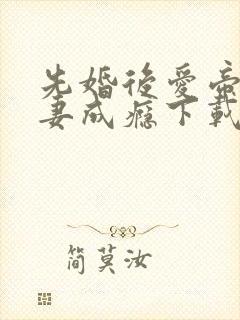 先婚後愛帝
妻成癮下載
简莫汝